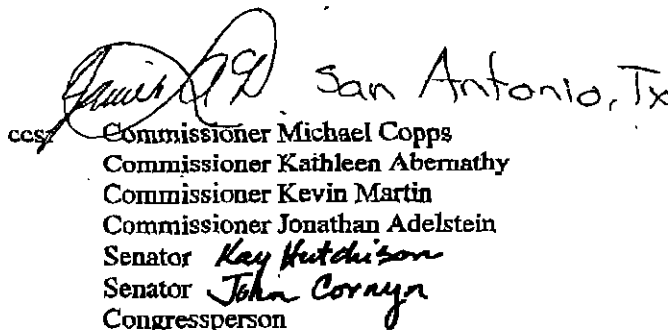 San Antonio, Tx
ccs: Commissioner Michael Copps
Commissioner Kathleen Abernathy
Commissioner Kevin Martin
Commissioner Jonathan Adelstein
Senator Kay Hutchison
Senator John Cornyn
Congressperson